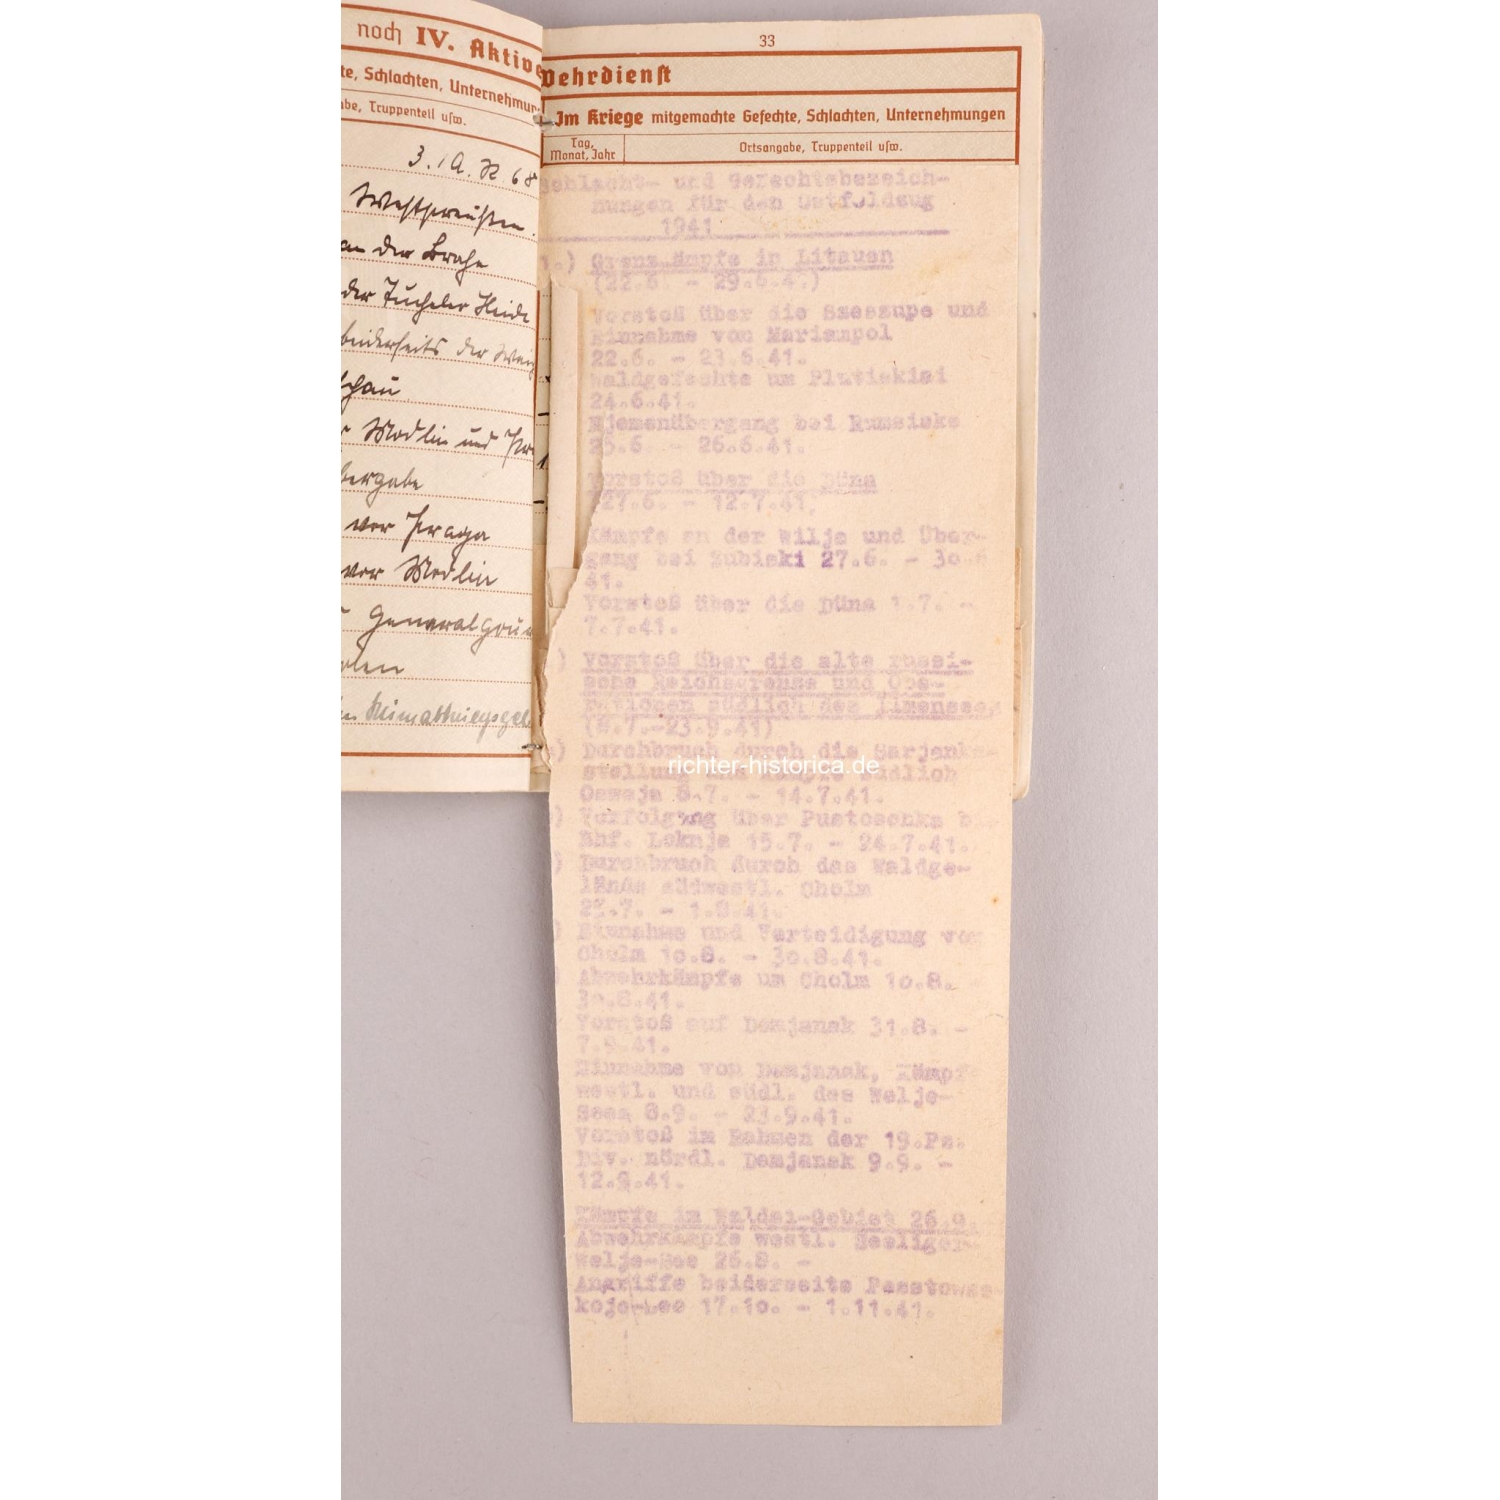 noch IV. Aktive
te, Schlachten, Unternehmun
abe, Truppenteil usw.
3. /A. R 68
Westpreußen.
an der Brahe
der Tucheler Heide
beiderseits der
Modlin und
bergabe
vor Praga
vor Modlin
Generalgouv
Polen
33
Wehrdienst
Im Kriege mitgemachte Gefechte, Schlachten, Unternehmungen
Tag, Monat, Jahr
Ortsangabe, Truppenteil usw.
Schlacht- und Gefechtsbezeich-
nungen für den Ostfeldzug
1941
1.) Grenzkämpfe in Litauen
(22.6. - 29.6.41)
Vorstoß über die Szeszupe und
Einnahme von Mariampol
22.6. - 23.6.41.
Waldgefechte um Plutiskiai
24.6.41.
Njemenübergang bei Rumsiske
25.6 - 26.6.41.
Vorstoß über die Düna
(27.6. - 12.7.41.
Kämpfe an der Wilja und Über-
gang bei Zubiski 27.6. - 30.6
41.
Vorstoß über die Düna 1.7. -
7.7.41.
) Vorstoß über die alte russi-
sche Reichsgrenze und Ope-
rationen südlich des Ilmensees
(8.7.-23.9.41)
) Durchbruch durch die Sarjanka-
stellung und Kämpfe südlich
Osweja 8.7. - 14.7.41.
) Verfolgung über Pustoschka b
Bhf. Loknja 15.7. - 24.7.41.
) Durchbruch durch das Waldge-
lände südwestl. Cholm
25.7. - 1.8.41.
) Einnahme und Verteidigung von
Cholm 10.8. - 30.8.41.
) Abwehrkämpfe um Cholm 10.8.
30.8.41.
Vorstoß auf Demjansk 31.8. -
7.9.41.
Einnahme von Demjansk, Kämpf
westl. und südl. des Welje-
Sees 8.9. - 23.9.41.
Vorstoß im Rahmen der 19.Pz.
Div. nördl. Demjansk 9.9. -
12.9.41.
Kämpfe im Waldai-Gebiet 26.9
Abwehrkämpfe westl. Seeliger-
Welje-See 26.8. -
Angriffe beiderseits Passtows
koje-See 17.10. - 1.11.41.
richter-historica.de